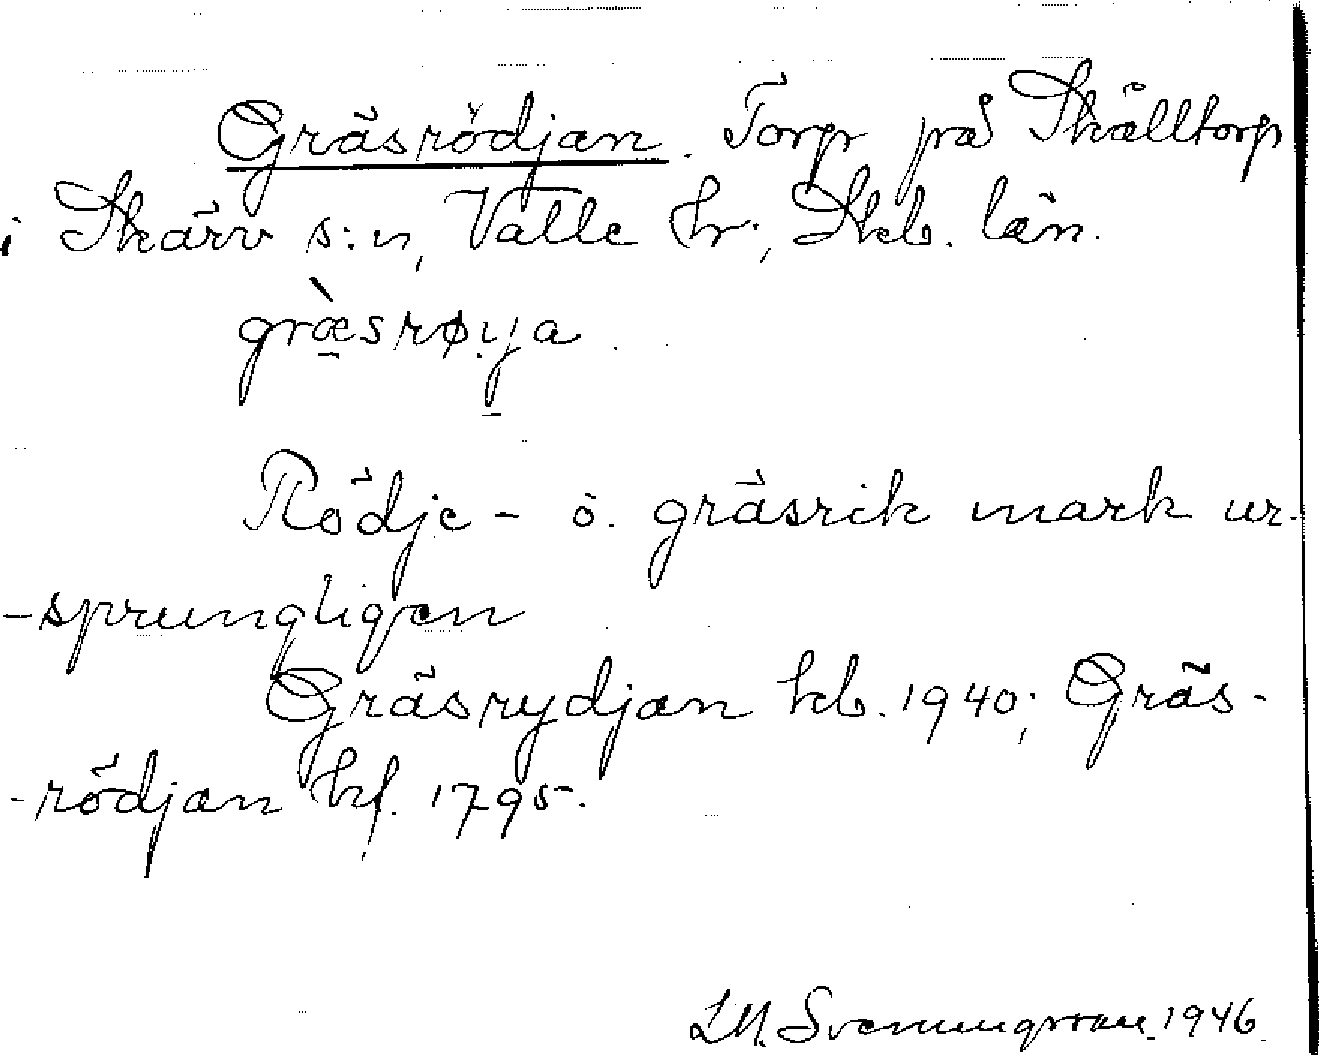 Gräsrödjan. Torp på Skålltorp
i Skärv s:n, Valle hr; Skb. län.
græ̀srøya
Rödje - ö. gräsrik mark ur-
-sprungligen
Gräsrydjan kb. 1940; Gräs-
-rödjan hf. 1795.
Svenungsson 1946